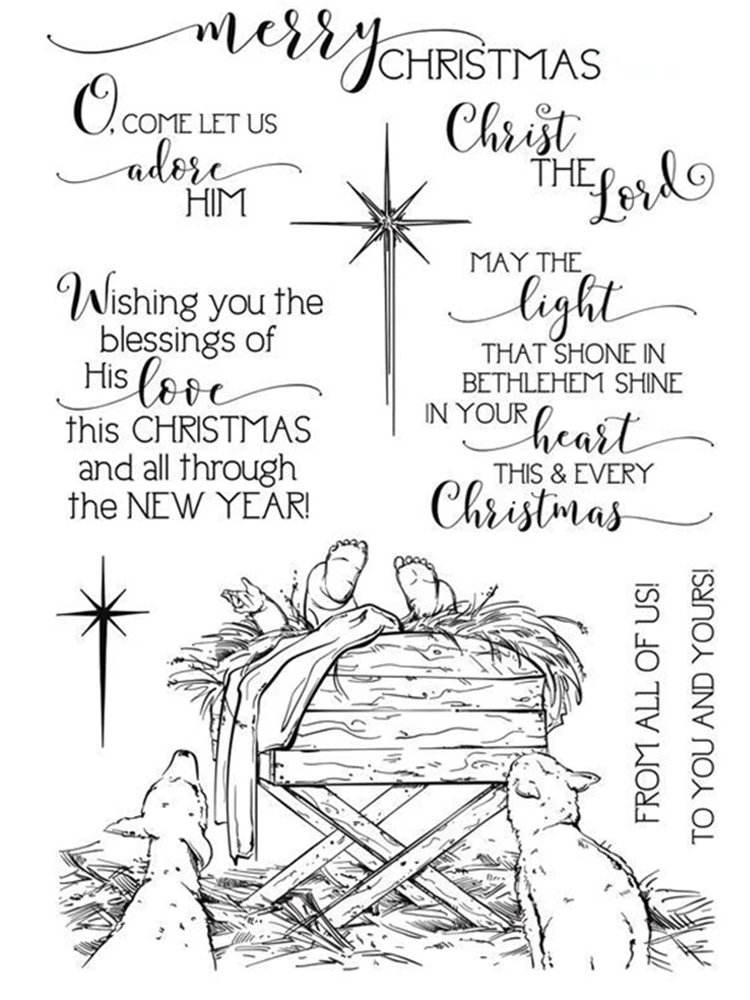 merry
CHRISTMAS
O, COME LET US
adore
HIM
Christ
THE
Lord
Wishing you the
blessings of
His love
this CHRISTMAS
and all through
the NEW YEAR!
MAY THE
light
THAT SHONE IN
BETHLEHEM SHINE
IN YOUR
heart
THIS & EVERY
Christmas
FROM ALL OF US!
TO YOU AND YOURS!